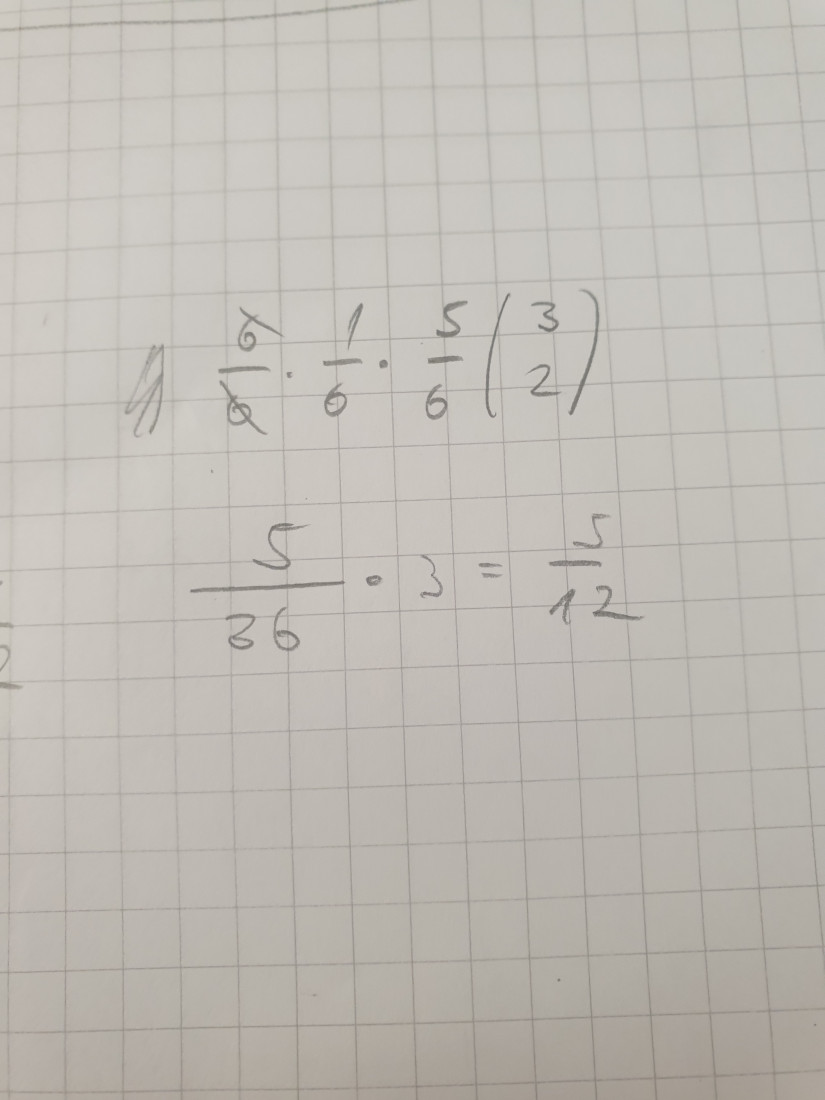 6/6 · 1/6 · 5/6 (3 2)
5/36 · 3 = 5/12